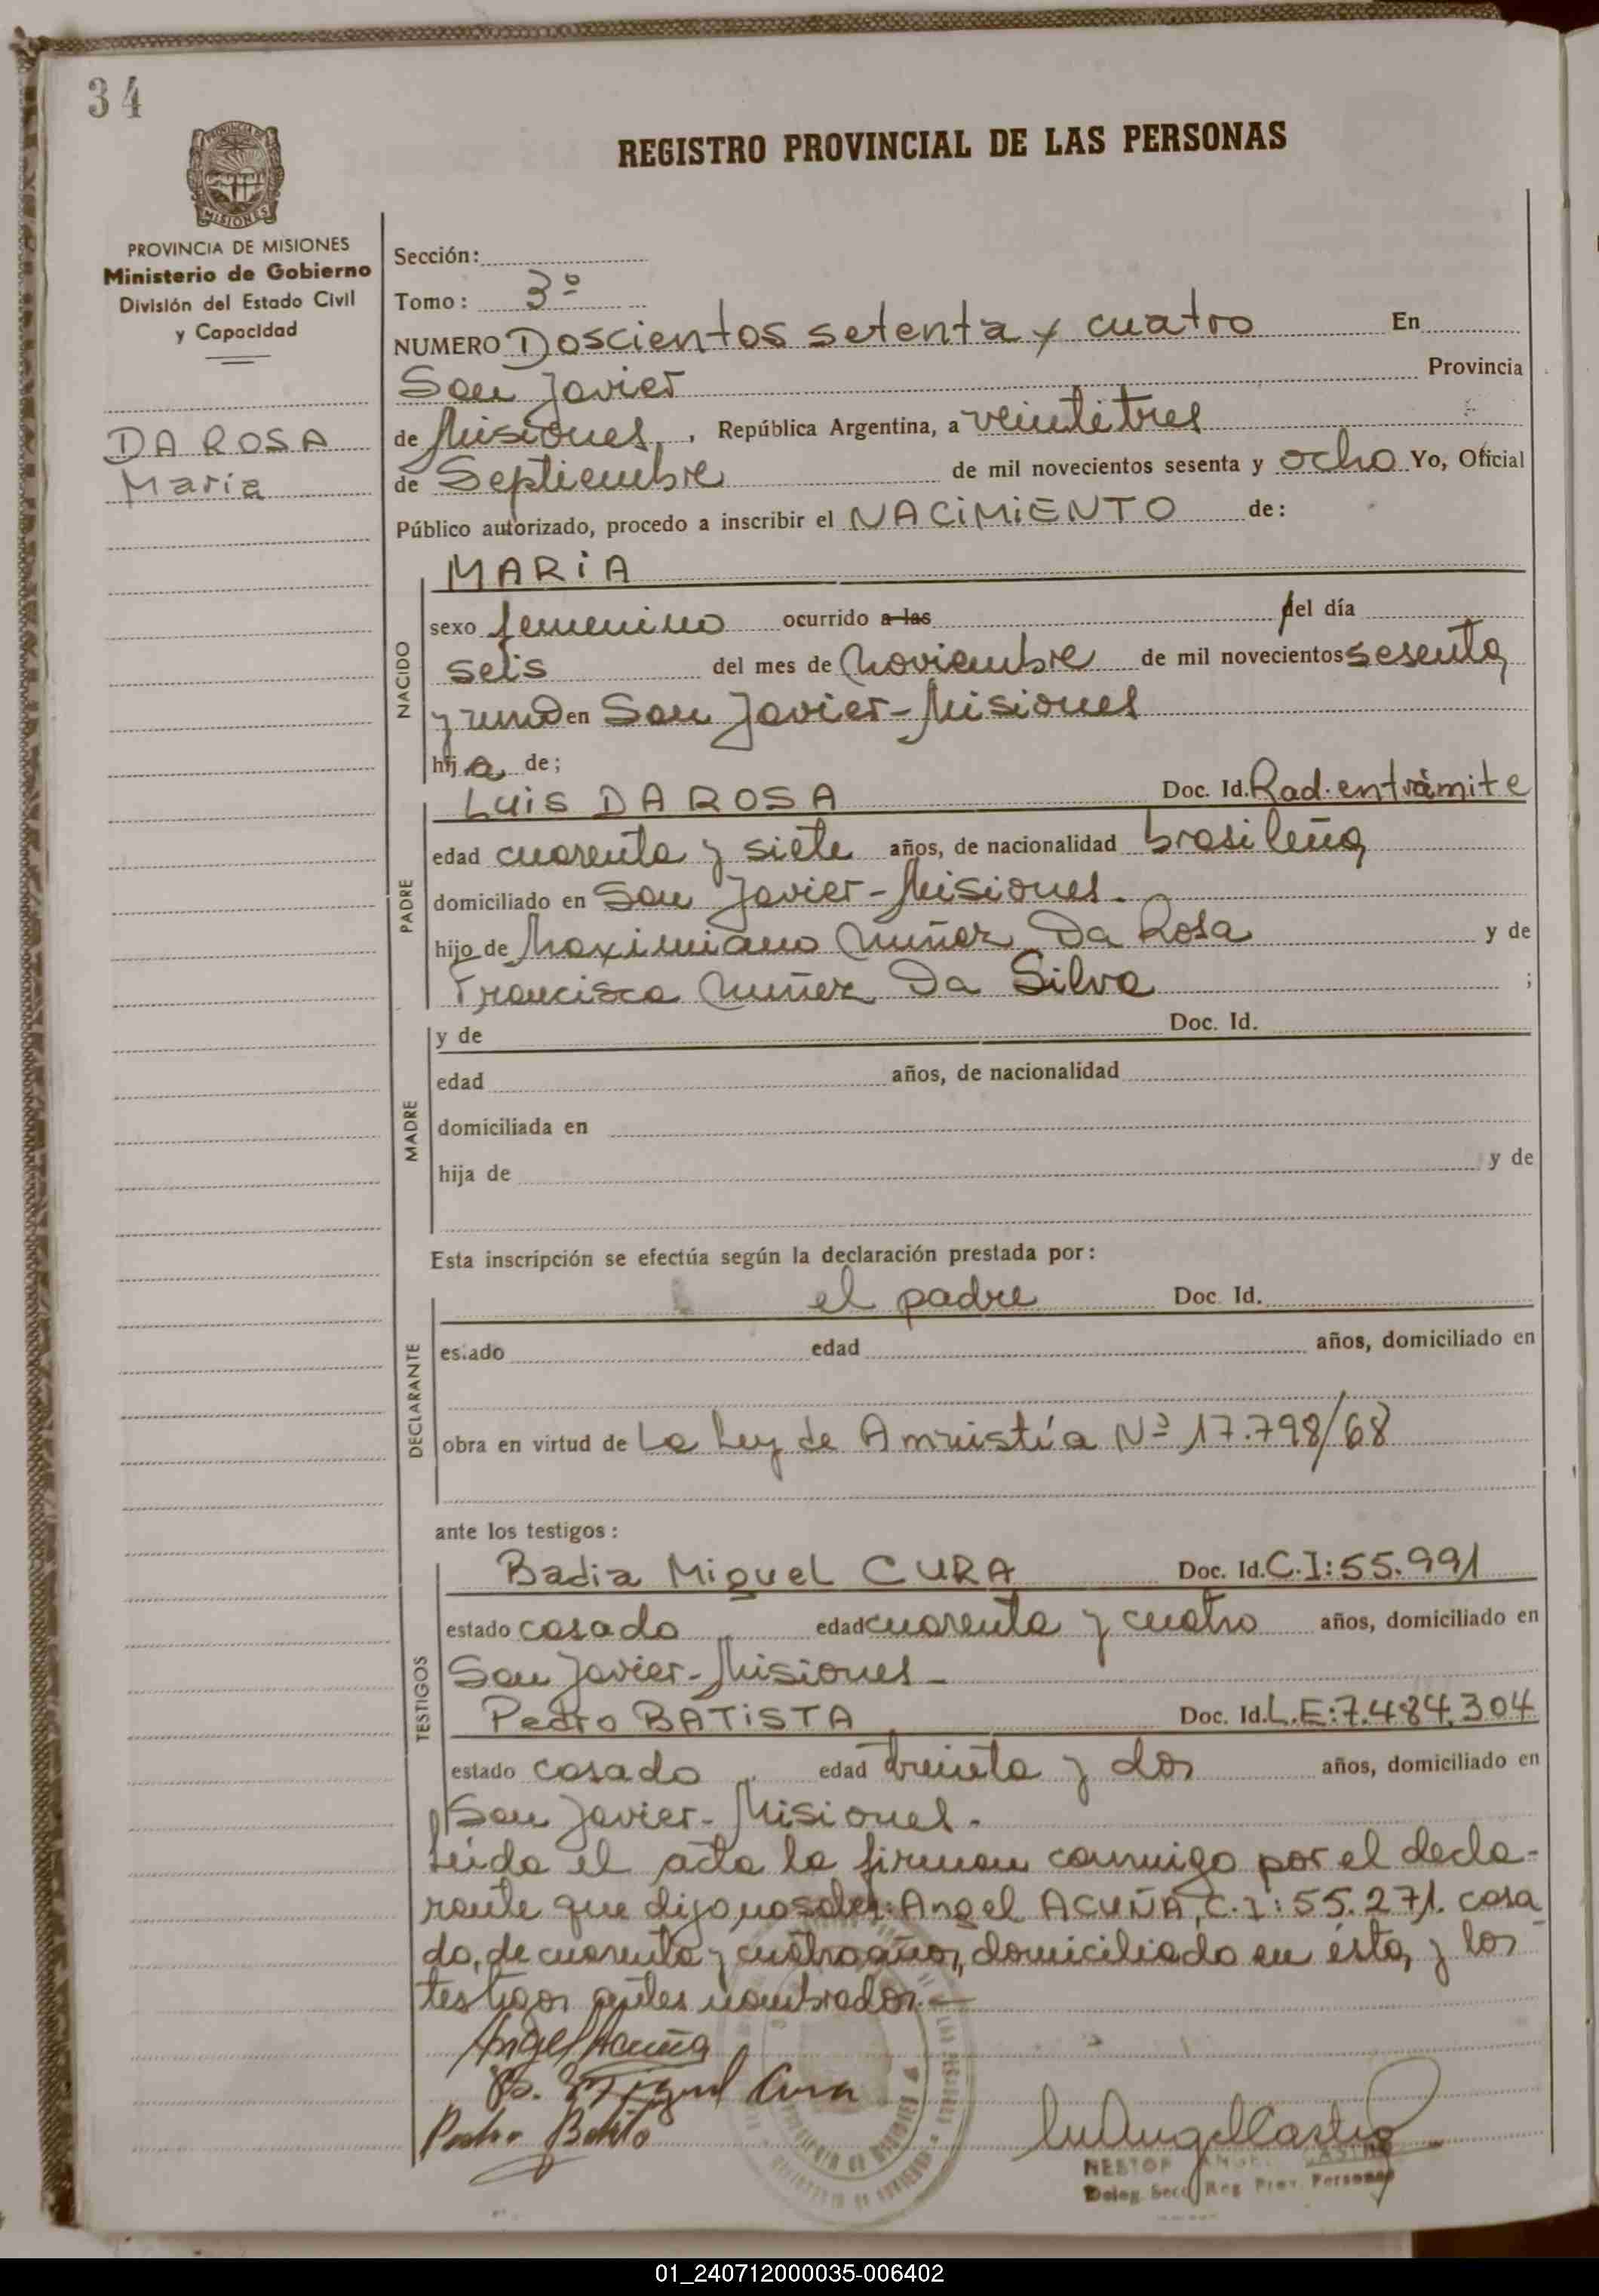 34
REGISTRO PROVINCIAL DE LAS PERSONAS
PROVINCIA DE MISIONES
Ministerio de Gobierno
División del Estado Civil
y Capacidad
DA ROSA
María
Sección:
Tomo: 3º
NUMERO Doscientos setenta y cuatro En
San Javier Provincia
de Misiones, República Argentina, a veintitres
de Septiembre de mil novecientos sesenta y ocho Yo, Oficial
Público autorizado, procedo a inscribir el NACIMIENTO de:
NACIDO
MARIA
sexo femenino ocurrido a las del día
seis del mes de noviembre de mil novecientos sesenta
y uno en San Javier - Misiones
hij a de;
PADRE
Luis DA ROSA Doc. Id. Rad. en trámite
edad cuarenta y siete años, de nacionalidad brasileña
domiciliado en San Javier - Misiones.
hijo de Maximiano Nuñez Da Rosa y de
Francisca Nuñez Da Silva ;
MADRE
y de Doc. Id.
edad años, de nacionalidad
domiciliada en
hija de y de
Esta inscripción se efectúa según la declaración prestada por:
DECLARANTE
el padre Doc. Id.
estado edad años, domiciliado en
obra en virtud de La Ley de Amnistía Nº 17.798/68
ante los testigos:
TESTIGOS
Badia Miguel CURA Doc. Id. C.I: 55.991
estado casado edad cuarenta y cuatro años, domiciliado en
San Javier - Misiones -
Pedro BATISTA Doc. Id. L.E: 7.484.304
estado casado edad treinta y dos años, domiciliado en
San Javier - Misiones.
Leída el acta la firman conmigo por el decla-
rante que dijo no saber: Angel ACUÑA, C.I: 55.271. casa
do, de cuarenta y cuatro años, domiciliado en ésta, y los
testigos antes nombrados. -
Angel Acuña
B. Miguel Cura
Pedro Batista
NESTOR ANGEL CASTRO
Deleg. Secc Reg Prov. Personas
01_240712000035-006402